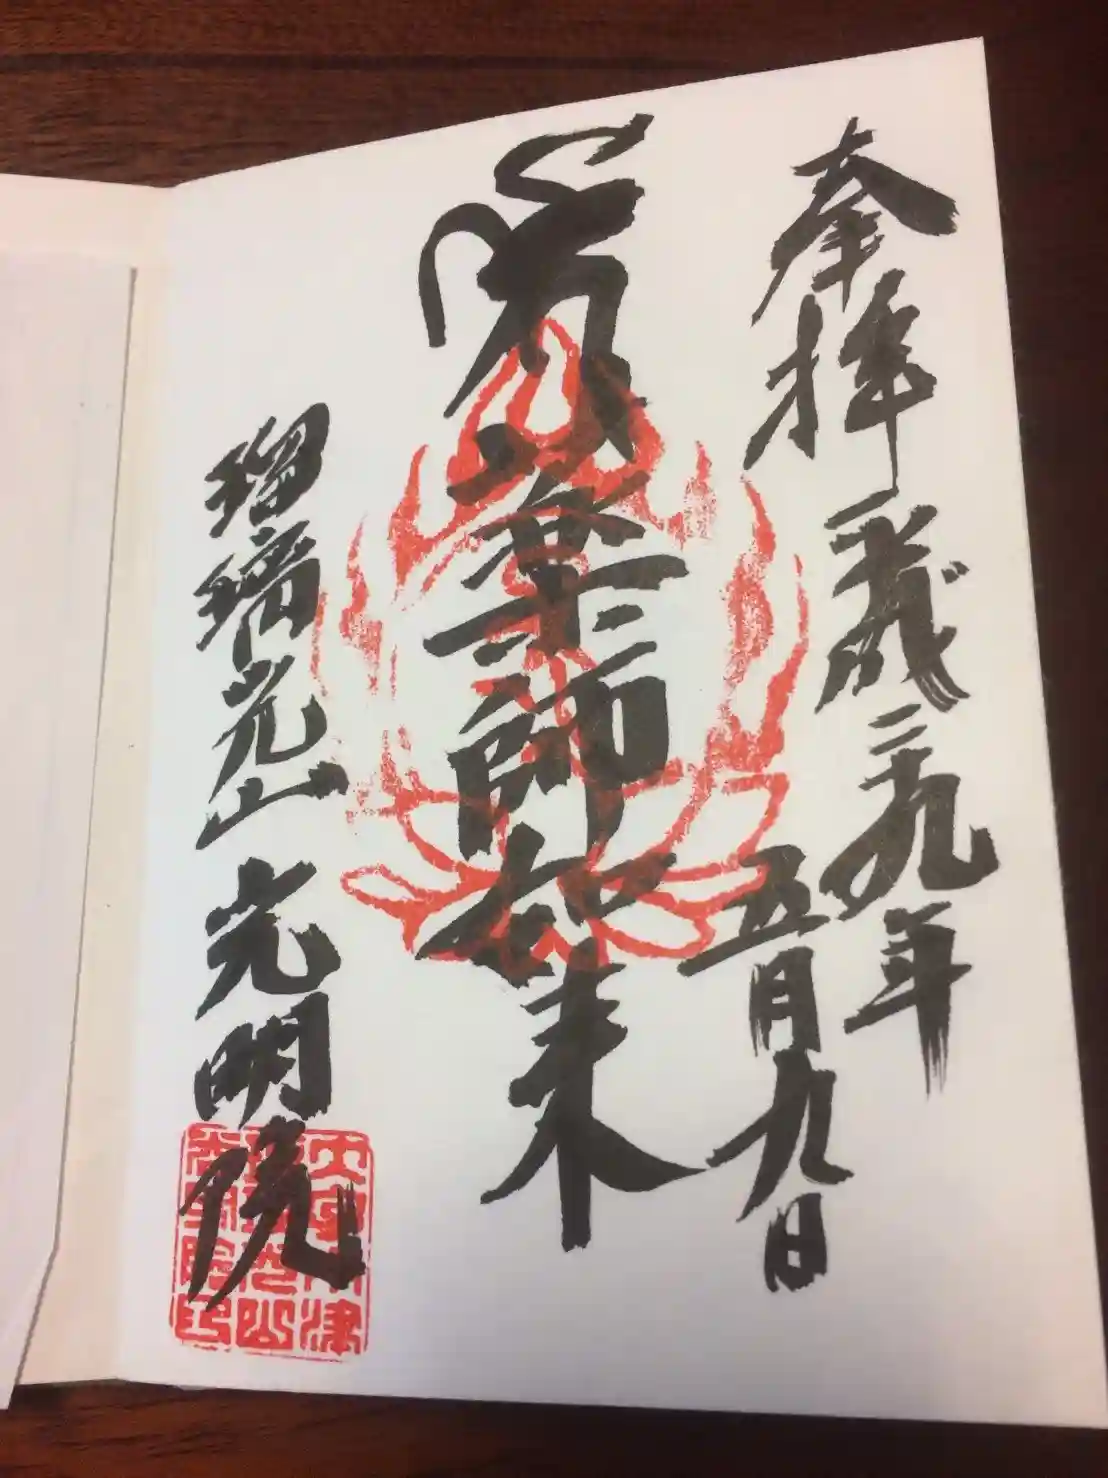 奉拝 平成二九年
五月九日
薬師如来
瑠璃光山 光明院